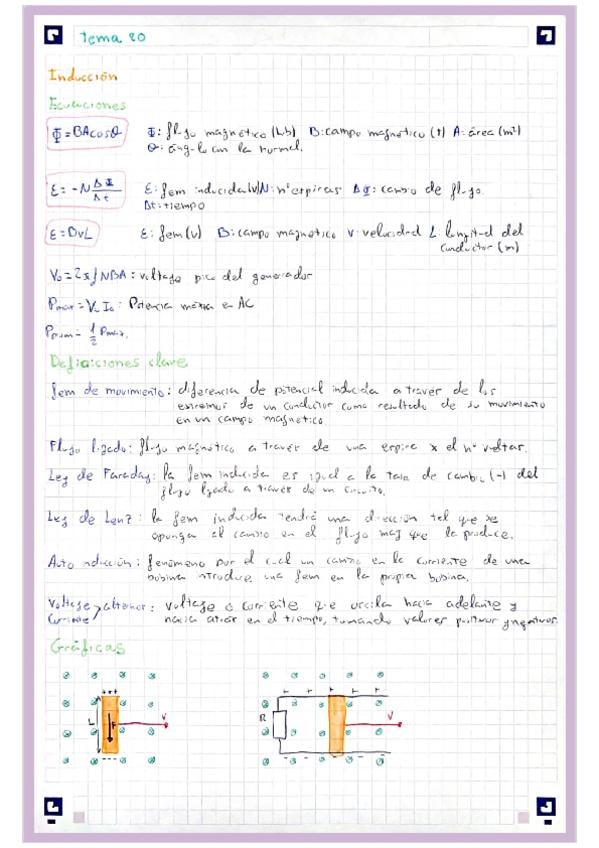 Tema 20
Inducción
Ecuaciones
Φ = BAcosθ Φ: flujo magnético (Wb) B: campo magnético (T) A: área (m²)
θ: ángulo con la normal.
ε = -N ΔΦ/Δt ε: fem inducida (V) N: nº espiras ΔΦ: cambio de flujo.
Δt: tiempo
ε = BvL ε: fem (V) B: campo magnético v: velocidad L: longitud del
conductor (m)
V₀ = 2πf NBA : voltaje pico del generador
Pmax = V₀ I₀ : Potencia máxima en AC
= ½ Pmax.
Definiciones clave
fem de movimiento: diferencia de potencial inducida a través de los
extremos de un conductor como resultado de su movimiento
en un campo magnético.
Flujo ligado: flujo magnético a través de una espira x el nº vueltas.
Ley de Faraday: la fem inducida es igual a la tasa de cambio (-) del
flujo ligado a través de un circuito.
Ley de Lenz: la fem inducida tendrá una dirección tal que se
oponga al cambio en el flujo mag que la produce.
Auto inducción: fenómeno por el cual un cambio en la corriente de una
bobina introduce una fem en la propia bobina.
Voltaje > alterna: voltaje o corriente que oscila hacia adelante y
Corriente hacia atrás en el tiempo, tomando valores positivos y negativos.
Gráficas
+ + + + + + +
L F V R V
- - - - - -